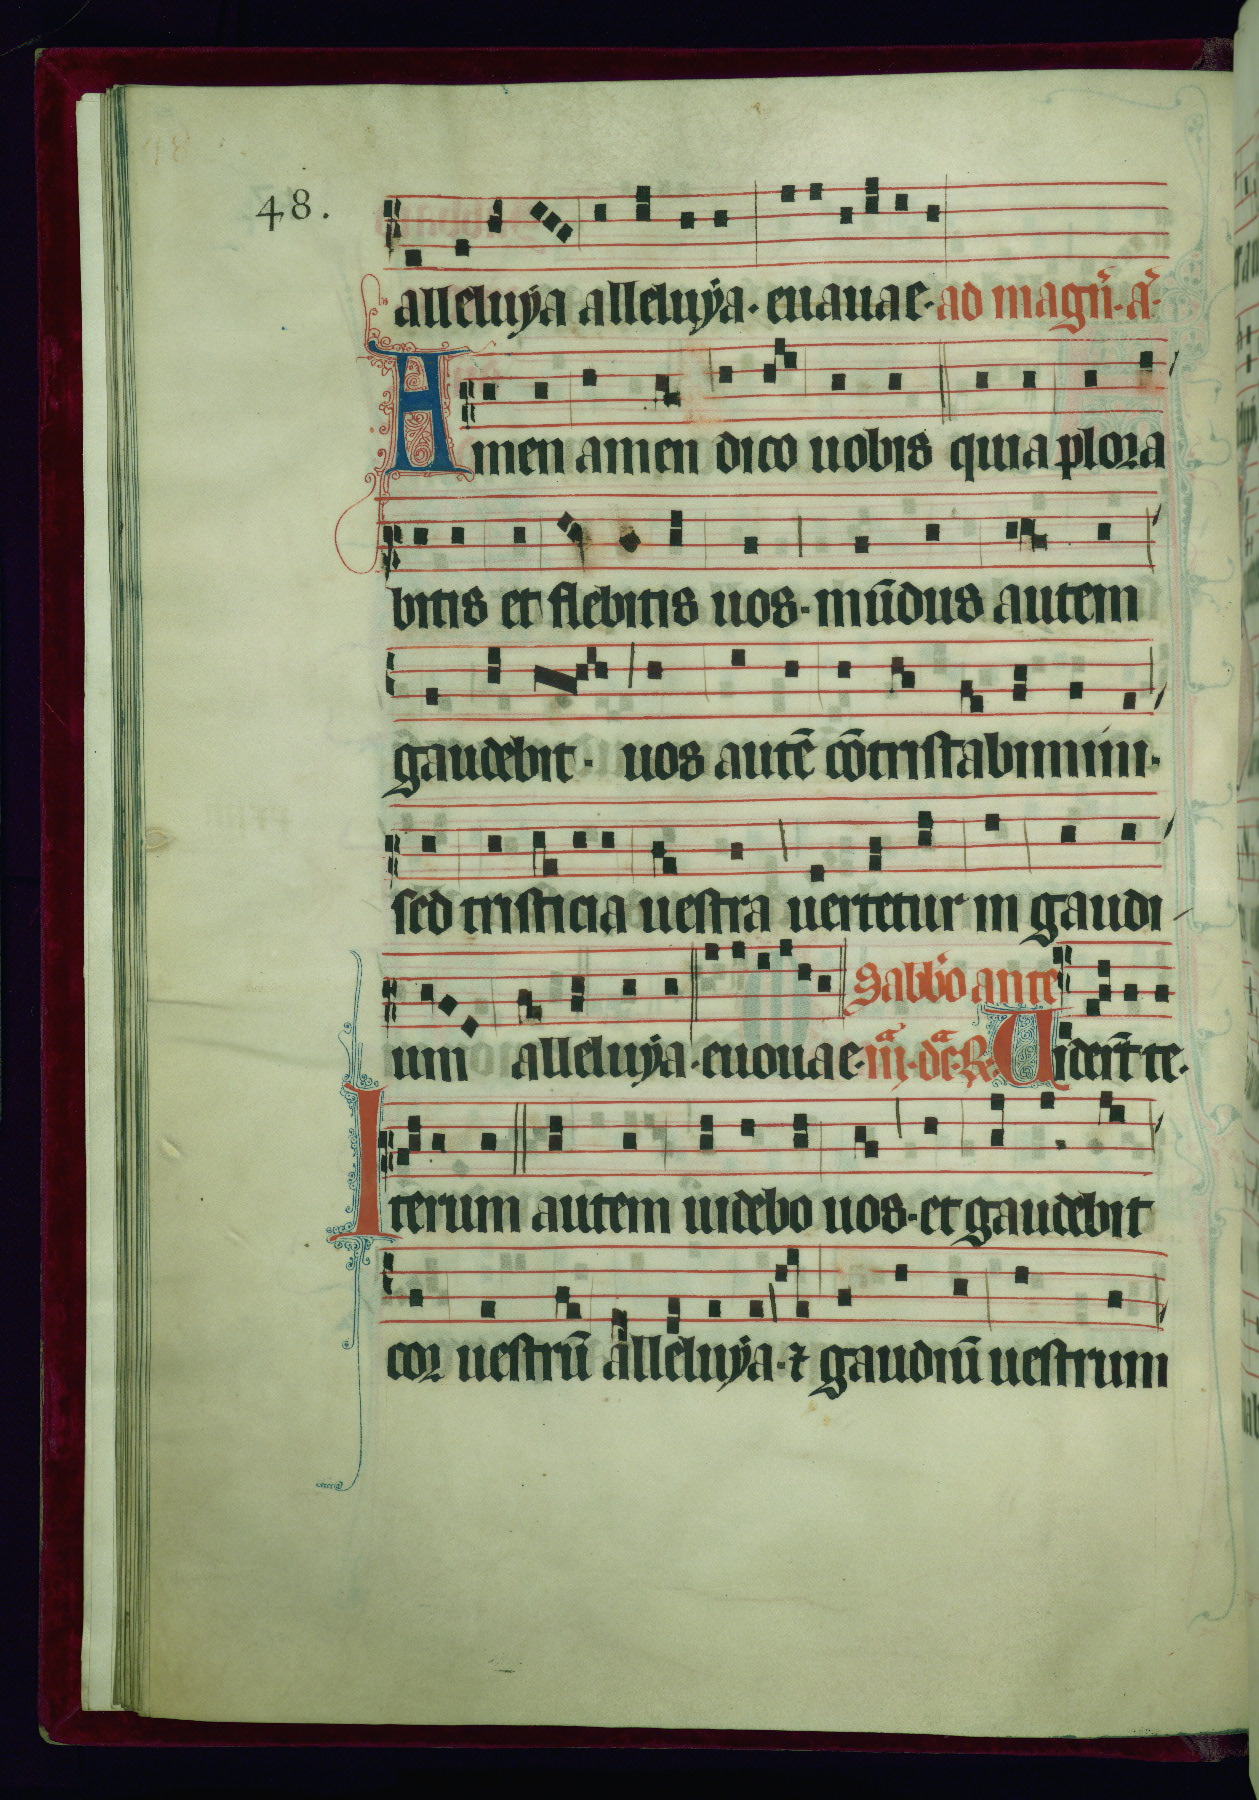 48.
alleluÿa alleluÿa· euauae· ad magñ· a᷒·
Amen amen dico uobis quia plora
bitis et flebitis uos· mūdus autem
gaudebit· uos autē cōtristabimini·
sed tristicia uestra uertetur in gaudi
um alleluÿa· euouae· Sabbo ante
iij· dc̄· R· Uider̄t te·
Iterum autem uidebo uos· et gaudebit
cor uestrū alleluÿa· ⁊ gaudiū uestrum